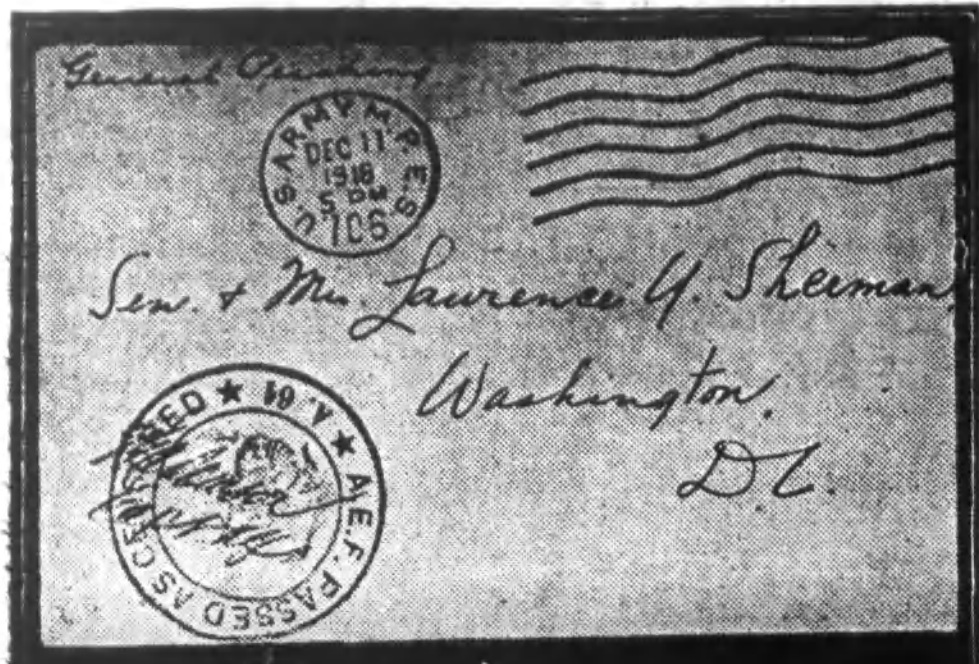 General Pershing
U.S. ARMY M.P.E.S.
DEC 11
1918
5 PM
706
Sen. & Mrs. Lawrence Y. Sherman,
Washington,
D.C.
A.E.F. PASSED AS CENSORED ★ A. 61 ★